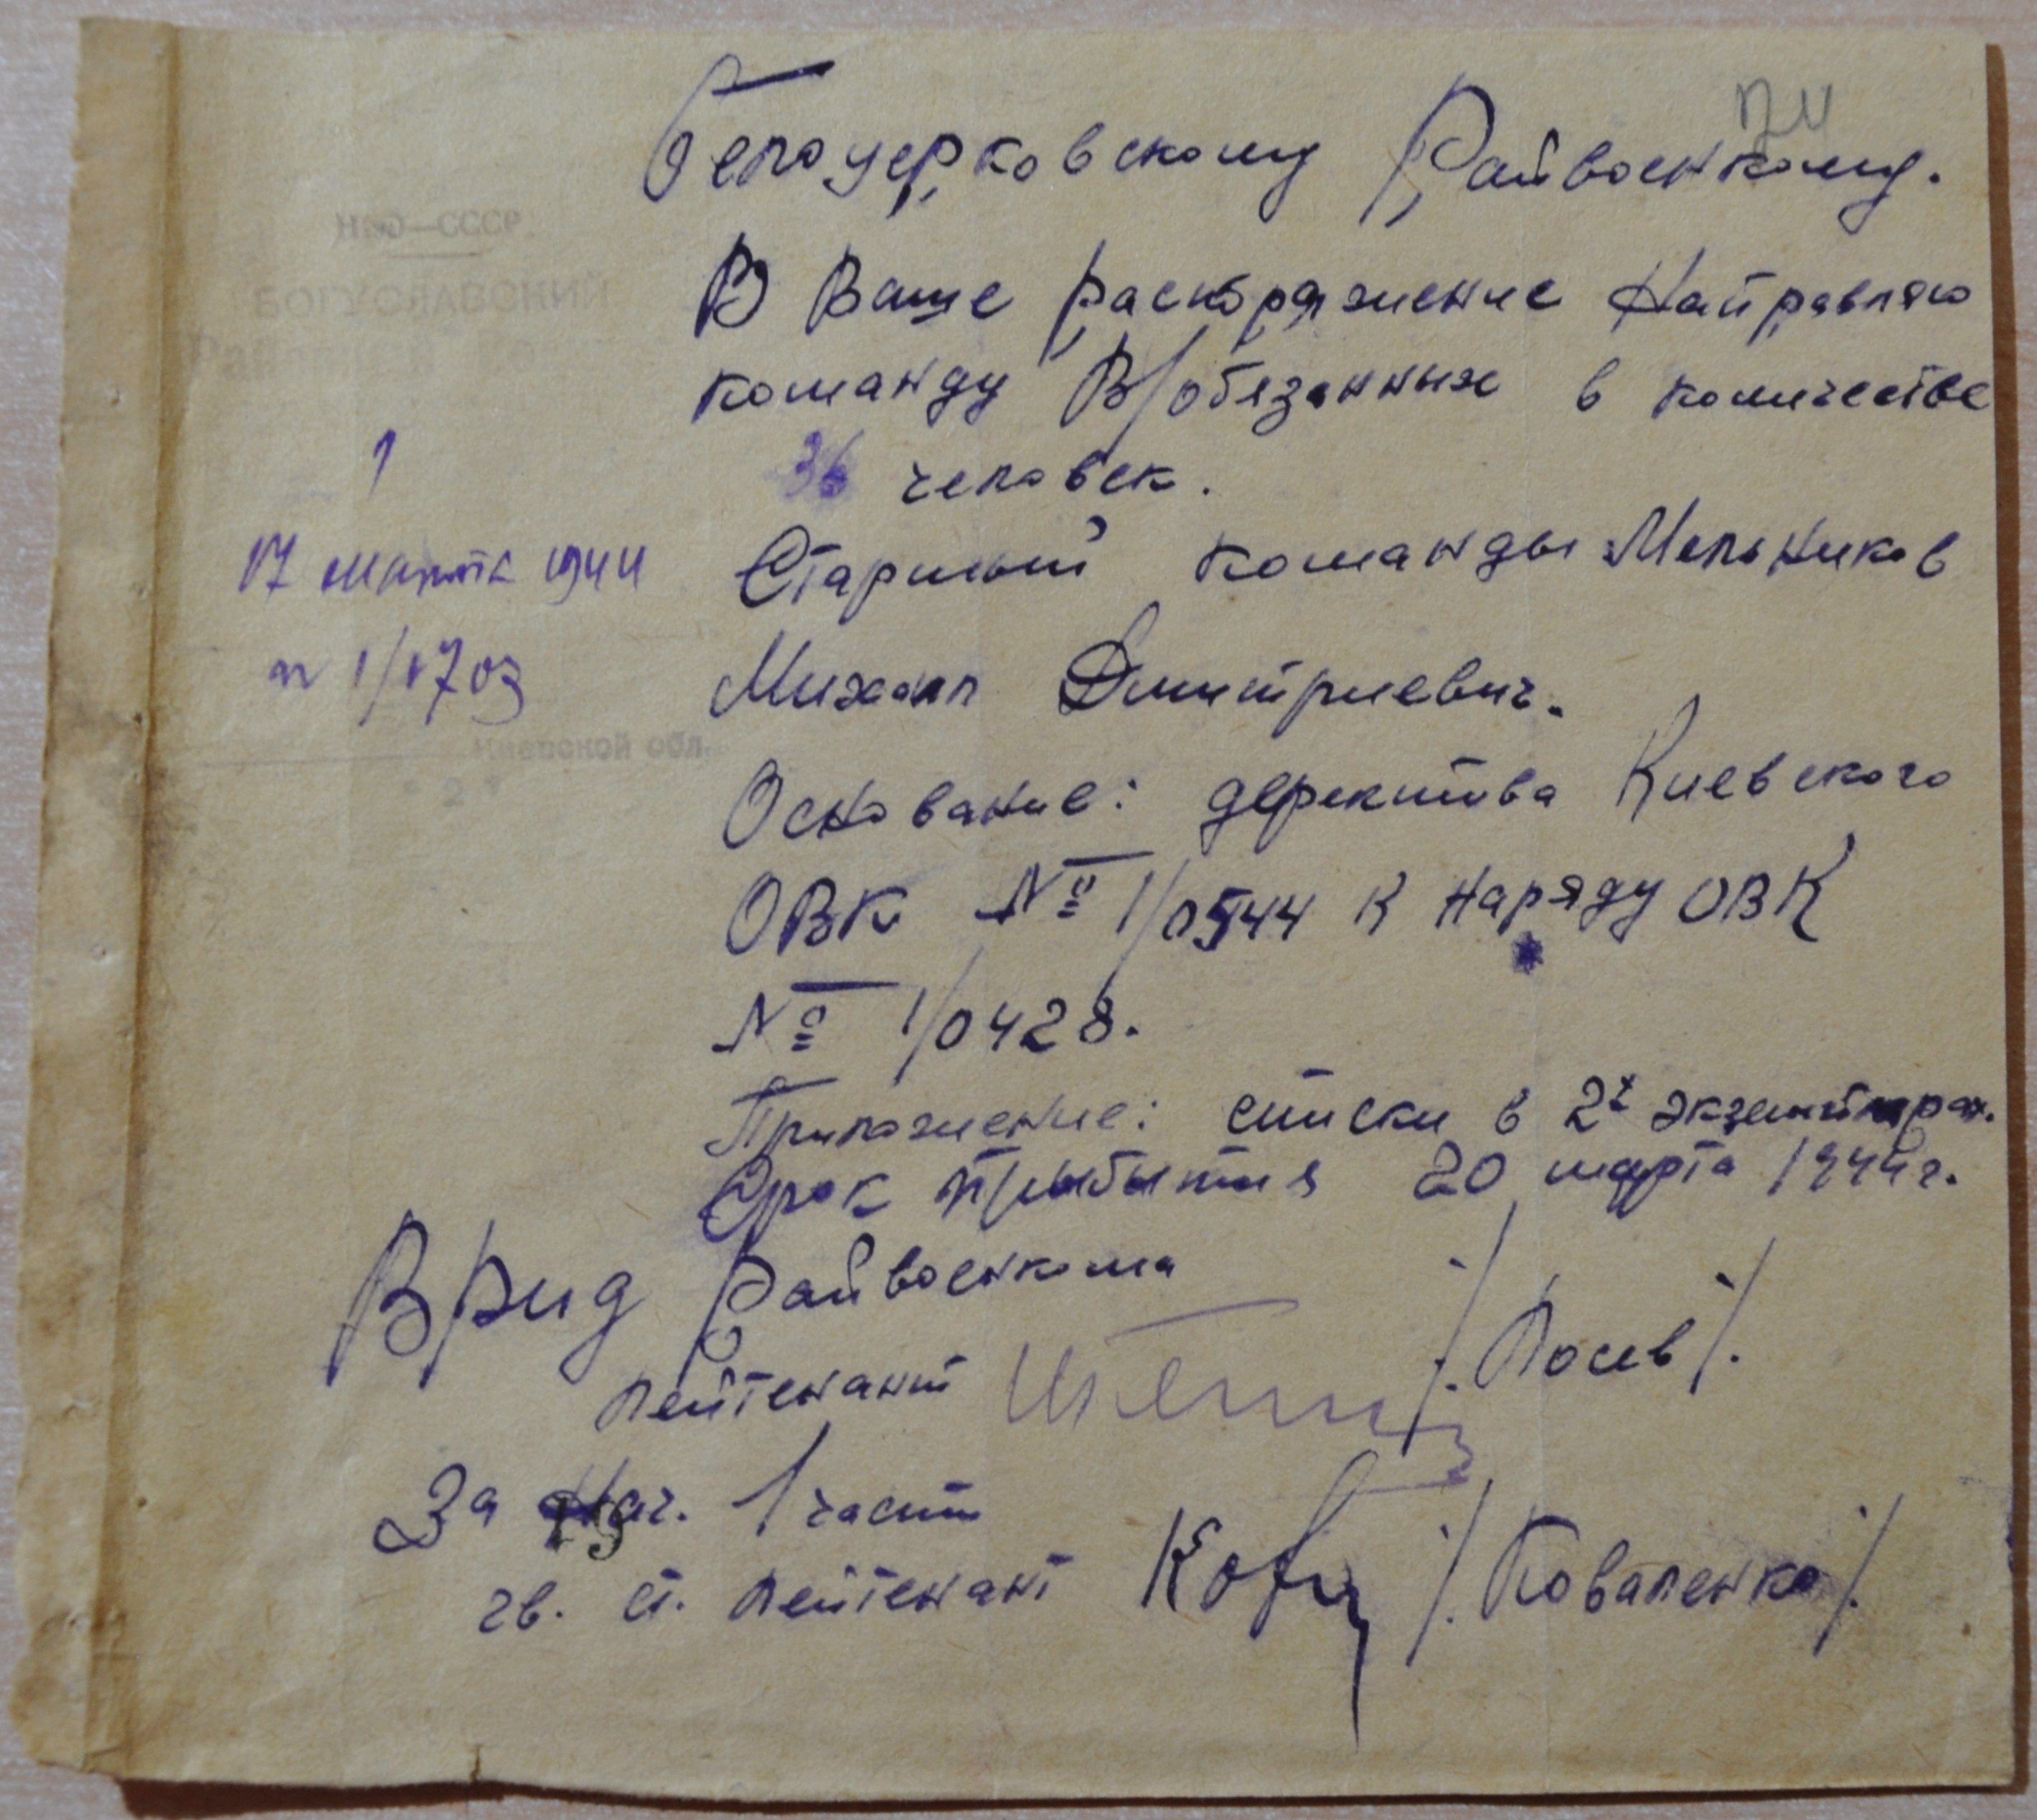 Белоцерковскому Райвоенкому.
НКО—СССР
БОГУСЛАВСКИЙ
В Ваше распоряжение направляю
команду В/обязанных в количестве
36 человек.
17 марта 1944
Старший команды Мельников
№ 1/1703
Михаил Дмитриевич.
Киевской обл.
Основание: деректива Киевского
ОВК № 1/0544 к наряду ОВК
№ 1/0428.
Приложение: списки в 2х экземпрах.
Срок прибытия 20 марта 1944 г.
ВРид Райвоенкома
лейтенант /Лосев/.
За Нач. 1 части
гв. ст. лейтенант /Коваленко/.